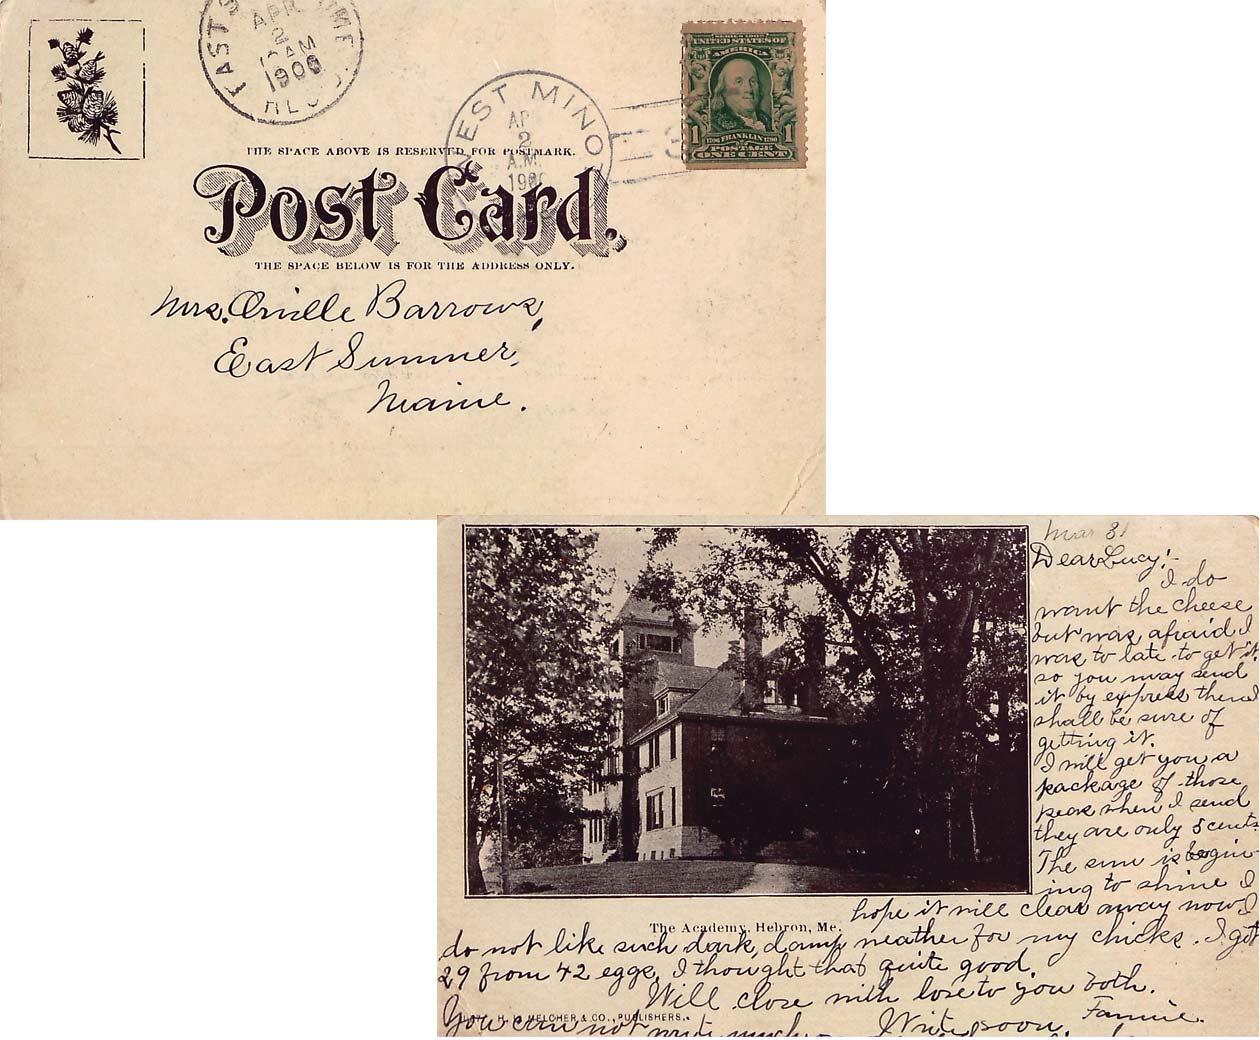 APR
2
1906
WEST MINOT
AP
2
A.M.
SERIES 1902
UNITED STATES OF
AMERICA
1 FRANKLIN 1
POSTAGE
ONE CENT
THE SPACE ABOVE IS RESERVED FOR POSTMARK.
Post Card.
THE SPACE BELOW IS FOR THE ADDRESS ONLY.
Mrs. Orville Barrows,
East Sumner,
Maine.
Mar 31
Dear Lucy:-
I do
want the cheese
but was afraid I
was to late to get it
so you may send
it by express then I
shall be sure of
getting it.
I will get you a
package of those
peas when I send
they are only 5 cents
The sun is begin-
ing to shine I
hope it will clear away now I
The Academy, Hebron, Me.
do not like such dark, damp weather for my chicks. I got
29 from 42 eggs, I thought that quite good.
Will close with love to you both.
Fannie.
H. MELCHER & CO., PUBLISHERS.
You can not write much Write soon.